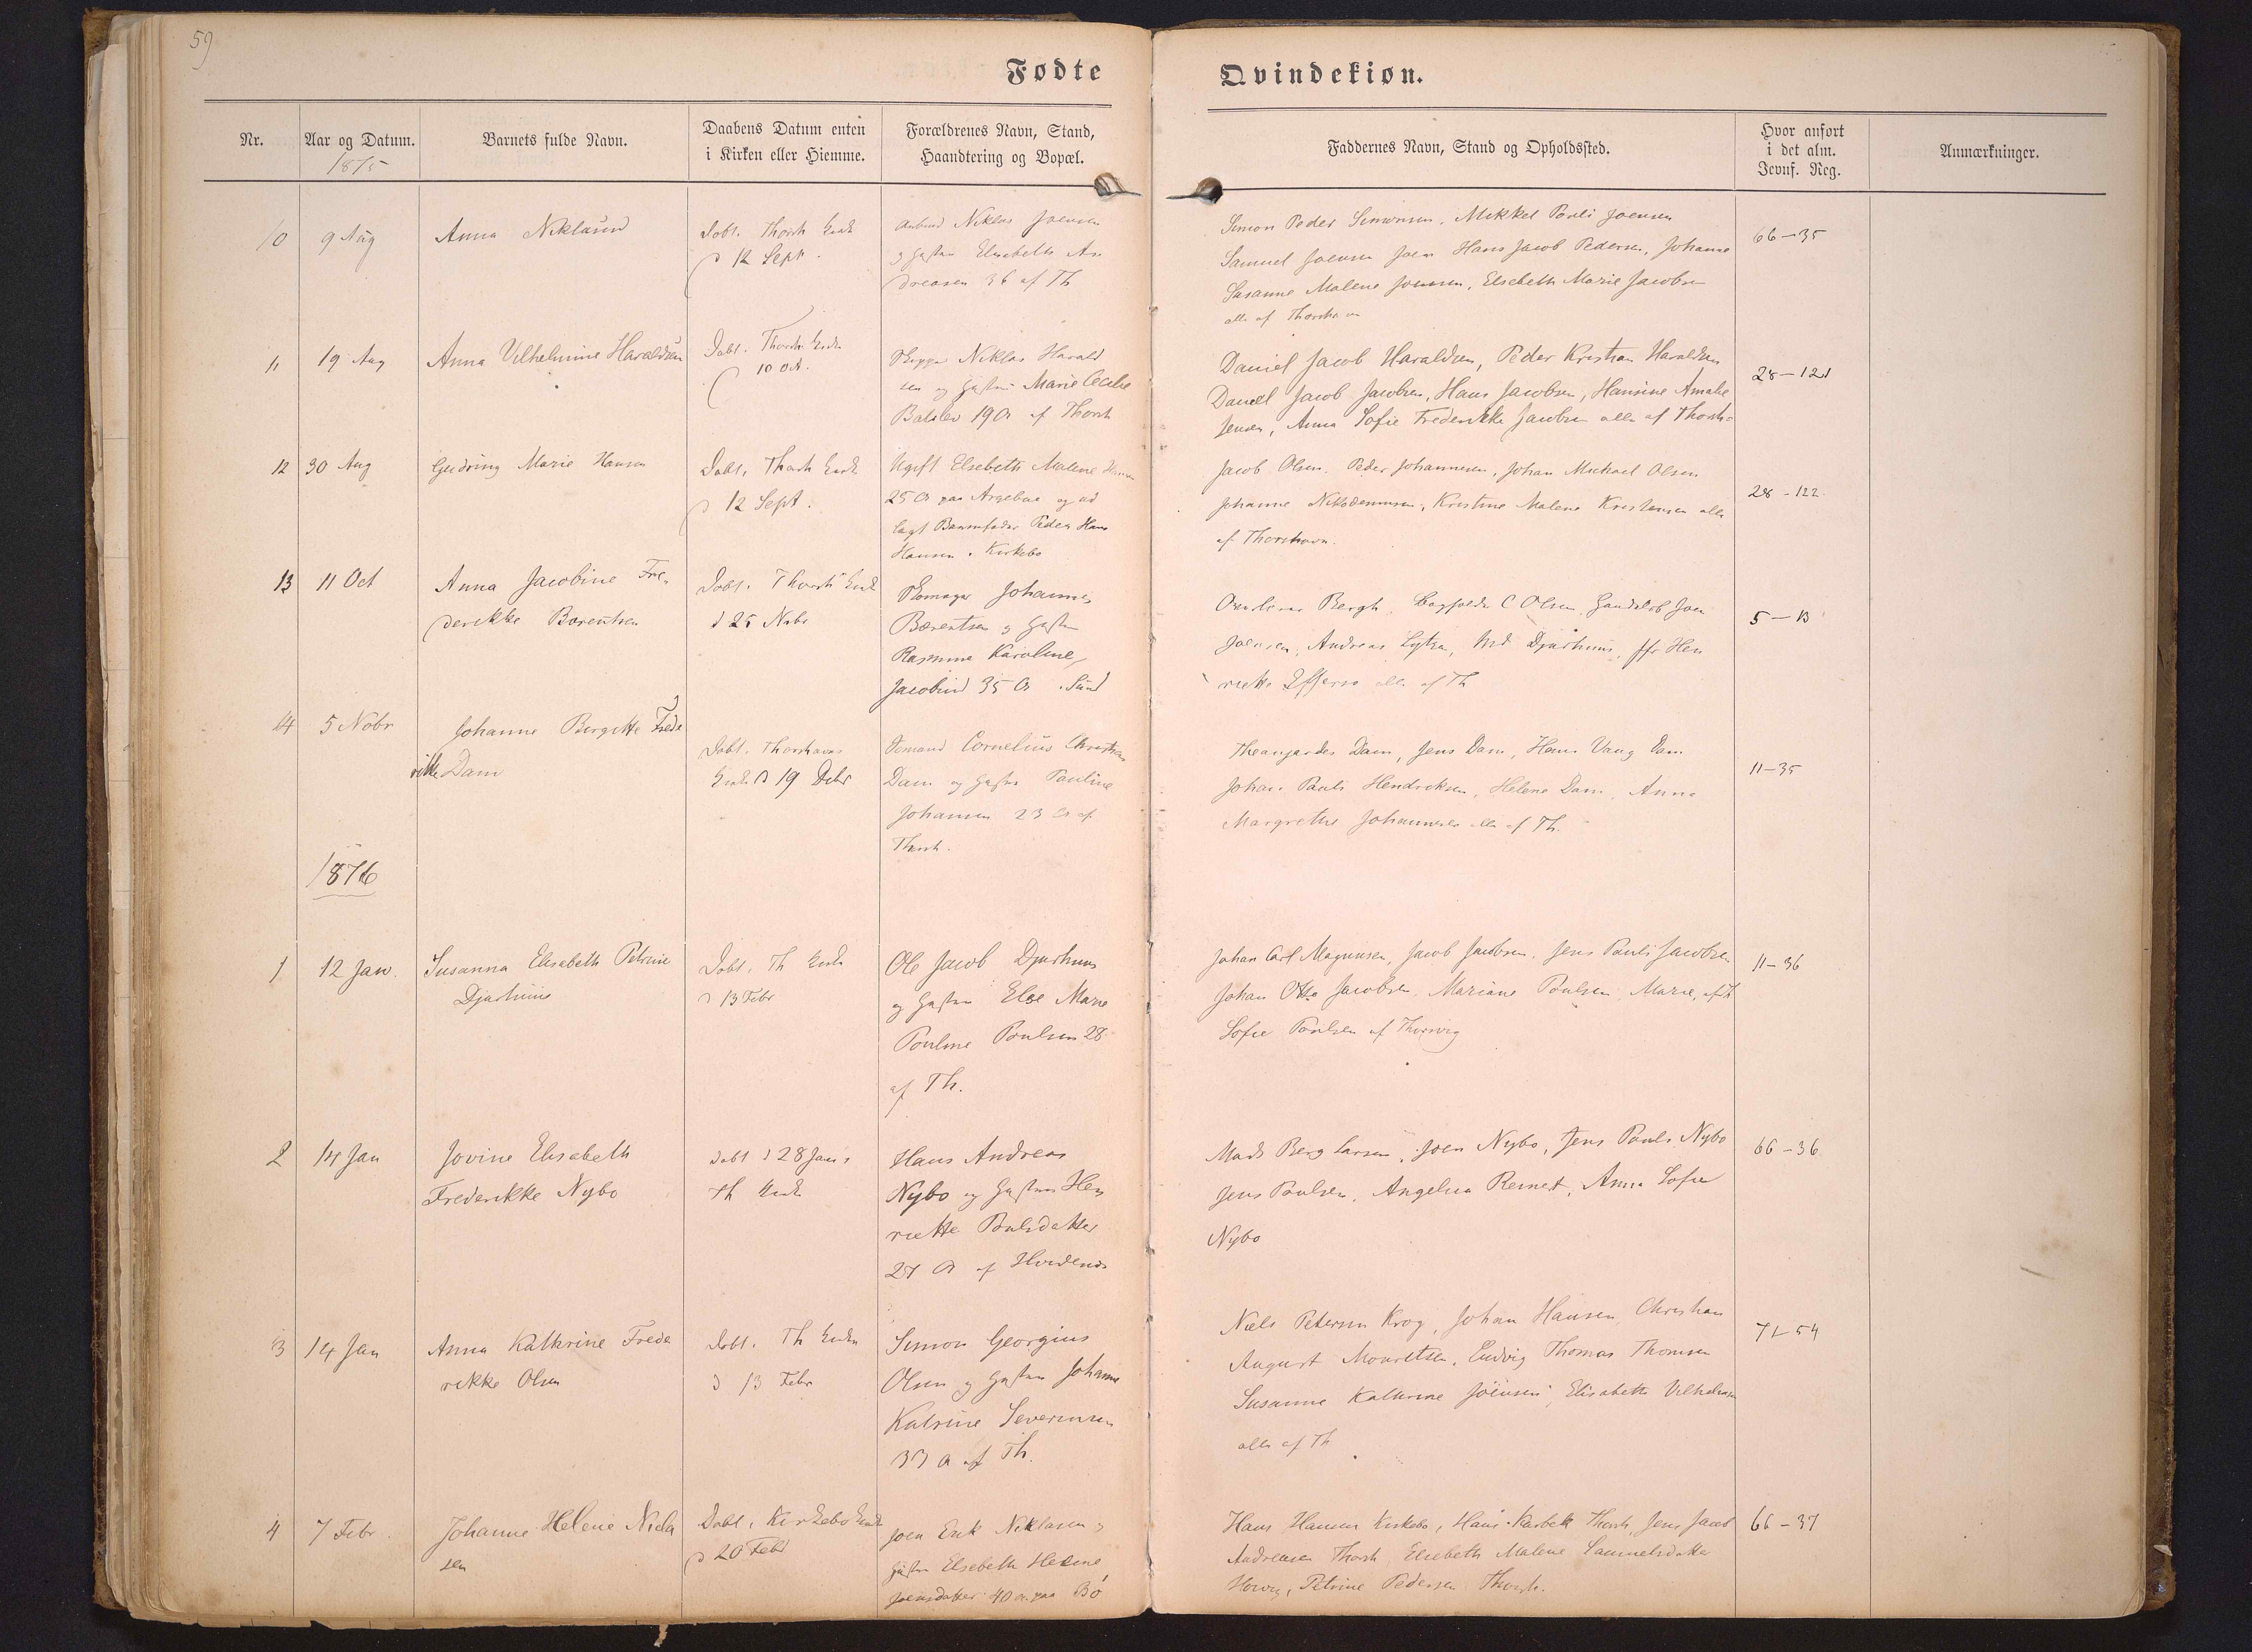 59
Fødte
Qvindekiøn.
Nr.
Aar og Datum.
1875
Barnets fulde Navn.
Daabens Datum enten
i Kirken eller Hiemme.
Forældrenes Navn, Stand,
Haandtering og Bopæl.
Faddernes Navn, Stand og Opholdssted.
Hvor anført
i det alm.
Jevnf. Reg.
Anmærkninger.
10
9 Aug
Anna
Døbt. Thorsh Kirke
d 12 Sept.
Niklas Joensen
og Hustru Elsebeth An
dreasen 36 af Th
Simon Peder Simonsen, Mikkel Pauli Joensen
Samuel Joensen Hans Jacob Pedersen, Johanne
Susanne Malene Joensen, Elsebeth Marie Jacobsen
alle af Thorshavn
66-35
11
19 Aug
Anna Vilhelmine Haraldsen
Døbt. Thorsh Kirke
10 Oct.
Niklas Harald
sen og Hustru Marie Cecilie
Balslev 19 A af Thorsh
Daniel Jacob Haraldsen, Peder Kristian Haraldsen
Daniel Jacob Jacobsen, Hans Jacobsen, Hansine Amalie
Jensen, Anna Sofie Frederikke Jacobsen alle af Thorsh
28-121
12
30 Aug
Marie Hansen
Døbt. Thorsh Kirke
d 12 Sept.
Ugift Elsebeth Malene Hansen
25 A paa og ud
lagt Barnefader Peder Hans
Hansen, Kirkebø
Jacob Olsen, Peder Johannesen, Johan Michael Olsen
Johanne Nikodemusen, Kristine Malene Kristensen alle
af Thorshavn.
28-122
13
11 Oct
Anna Jacobine Fre
derikke Bærentsen
Døbt. Thorsh Kirke
d 25 Nvbr
Skomager Johannes
Bærentsen og Hustru
Rasmine Karoline
35 A
Bergh, C Olsen, Joen
Joensen, Andreas Lytzen, Djurhuus, Hen
riette Effersø alle af Th
5-13
14
5 Nobr
Johanne Birgitte Frede
rikke Dam
Døbt. Thorshavns
Kirke d 19 Debr
Sømand Cornelius Christian
Dam og Hustru Pauline
Johansen 23 A af
Thorsh.
Dam, Jens Dam, Hans Vang Dam
Johan Pauli Hendriksen, Helene Dam, Anna
Margrethe Johannesen alle af Th.
11-35
1876
1
12 Jan.
Susanna Elisabeth Petrine
Djurhuus
Døbt. Th Kirke
d 13 Febr
Ole Jacob Djurhuus
og Hustru Else Marie
Pouline Poulsen 28
af Th.
Johan Carl Magnusen, Jacob Jacobsen, Jens Pauli Jacobsen
Johan Otto Jacobsen, Mariane Poulsen, Marie, af Th
Sofie Poulsen af
11-36
2
14 Jan
Jovine Elisabeth
Frederikke Nybo
Døbt d 28 Jan i
Th Kirke
Hans Andreas
Nybo og Hustru Hen
riette Poulsdatter
27 A af Hvidenæs
Mads Berg Larsen, Joen Nybo, Jens Pauli Nybo
Jens Poulsen, Angelica Reinert, Anna Sofie
Nybo
66-36
3
14 Jan
Anna Kathrine Frede
rikke Olsen
Døbt. Th Kirke
d 13 Febr
Simon Georgius
Olsen og Hustru Johanne
Katrine Severinsen
33 A af Th.
Niels Petersen Krog, Johan Hansen, Christian
August Mouritsen, Ludvig Thomas Thomsen
Susanne Kathrine Joensen, Elisabeth Vilhelmsen
alle af Th
71-54
4
7 Febr.
Johanne Helene Nicla
sen
Døbt. Kirkebø Kirke
d 20 Febr
Joen Erik Niklasen og
Hustru Elsebeth Helene
Joensdatter 40 A. paa Bø
Hans Hansen Kirkebø, Hans Thorsh, Jens Jacob
Andreasen Thorsh, Elsebeth Malene Samuelsdatter
Petrine Pedersen Thorsh.
66-37